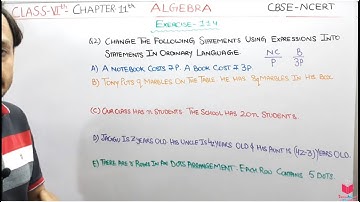 CLASS-VIth CHAPTER-11th ALGEBRA CBSE-NCERT
EXERCISE-11.4
Q2) CHANGE THE FOLLOWING STATEMENTS USING EXPRESSIONS INTO
STATEMENTS IN ORDINARY LANGUAGE.
NC B
P 3P
A) A NOTEBOOK COSTS ₹P. A BOOK COST ₹3P.
B) TONY PUTS q MARBLES ON THE TABLE. HE HAS 8q MARBLES IN HIS BOX.
(C) OUR CLASS HAS n STUDENTS. THE SCHOOL HAS 20n STUDENTS.
D) JAGGU IS Z YEARS OLD. HIS UNCLE IS 4Z YEARS OLD & HIS AUNT IS (4Z-3) YEARS OLD.
E) THERE ARE r ROWS IN AN DOTS ARRANGEMENT. EACH ROW CONTAINS 5 DOTS.